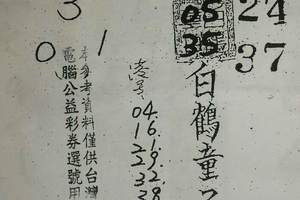 3
0 1
05 24
35 37
白鶴童
凌晨
04.
16.
29.
32.
38
本參考資料僅供台灣
電腦公益彩券選號用